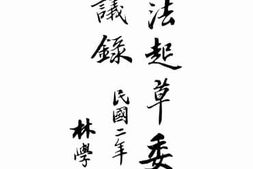 法起草委
議錄
民國二年
林學